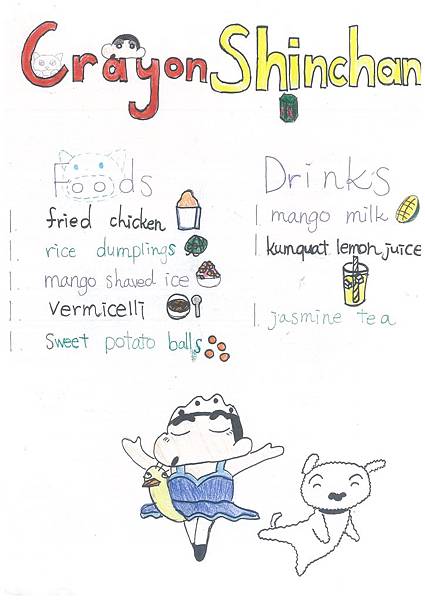 Crayon Shinchan
Foods
1. fried chicken
1. rice dumplings
1. mango shaved ice
1. vermicelli
1. Sweet potato balls
Drinks
1. mango milk
1. kumquat lemon juice
1. jasmine tea